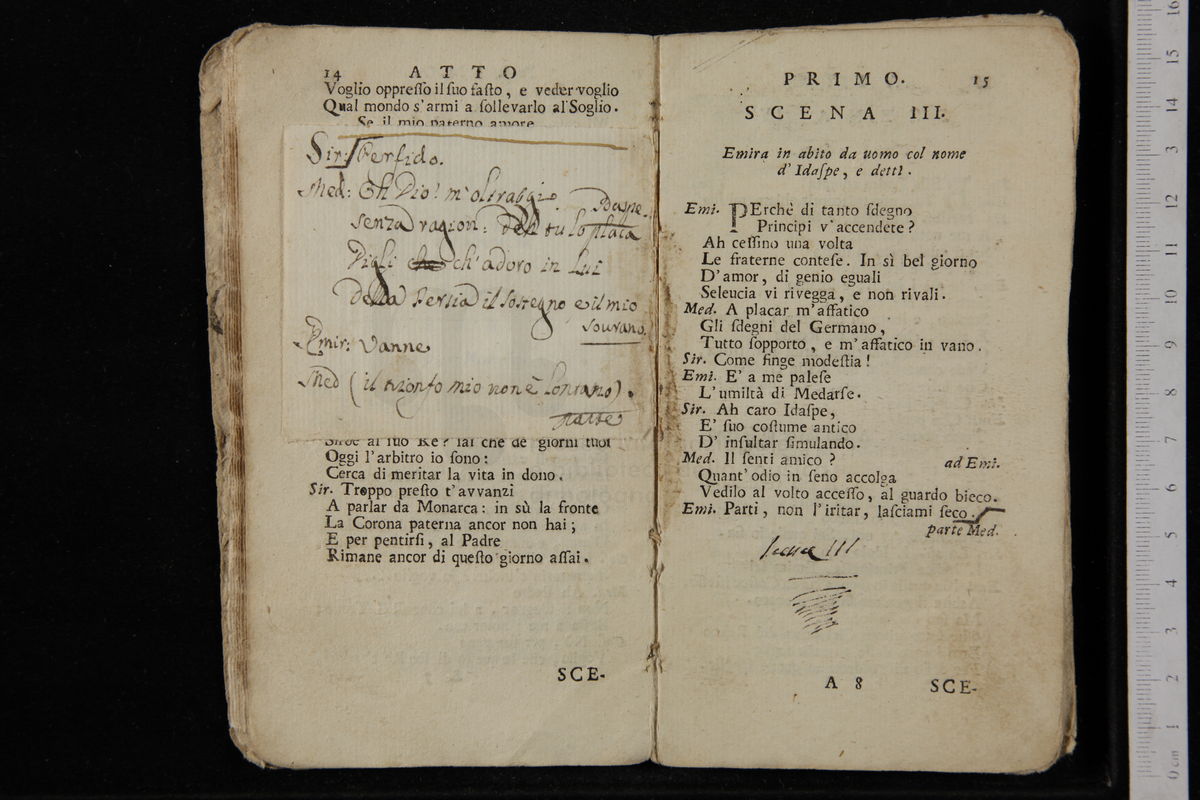 14 ATTO
Voglio oppreſſo il ſuo faſto, e veder voglio
Qual mondo s'armi a ſollevarlo al Soglio.
Se il mio paterno amore
Sir: Perfido.
Med: Oh Dio! m'oltraggi
senza ragion: Dell tu lo placa
Idaspe.
Digli ch'adoro in Lui
della Persia il sostegno e il mio
sourano.
Emir: Vanne
Med (il trionfo mio non è lontano).
parte
Siroe al ſuo Re? ſai che de' giorni tuoi
Oggi l'arbitro io ſono:
Cerca di meritar la vita in dono.
Sir. Troppo preſto t'avvanzi
A parlar da Monarca: in sù la fronte
La Corona paterna ancor non hai;
E per pentirſi, al Padre
Rimane ancor di queſto giorno aſſai.
SCE-
PRIMO. 15
SCENA III.
Emira in abito da uomo col nome
d'Idaſpe, e detti.
Emi. PErchè di tanto ſdegno
Principi v'accendete?
Ah ceſſino una volta
Le fraterne conteſe. In sì bel giorno
D'amor, di genio eguali
Seleucia vi rivegga, e non rivali.
Med. A placar m'affatico
Gli ſdegni del Germano,
Tutto ſopporto, e m'affatico in vano.
Sir. Come finge modeſtia!
Emi. E' a me paleſe
L'umiltà di Medarſe.
Sir. Ah caro Idaſpe,
E' ſuo coſtume antico
D' inſultar ſimulando.
Med. Il ſenti amico? ad Emi.
Quant'odio in ſeno accolga
Vedilo al volto acceſſo, al guardo bieco.
Emi. Parti, non l'iritar, laſciami ſeco.
parte Med.
Scena III
A 8 SCE-